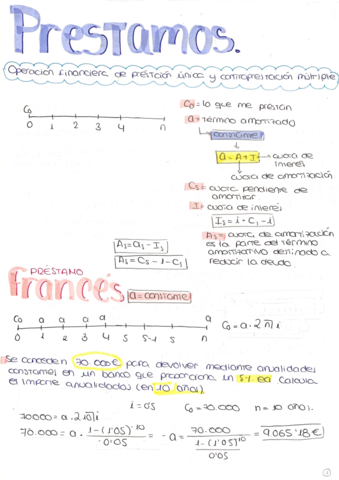 Prestamos.
Operación financiera de prestación única y contraprestación múltiple
C0 = lo que me prestan
a = término amortizado
constante!
C0
0 1 2 3 4 n
a = A + I → cuota de interés
cuota de amortización
Cs = cuota pendiente de amortizar.
I = cuota de interés
Is = i · Cs-1
As = cuota de amortización es la parte del término amortizativo destinado a reducir la deuda.
As = as - Is
As = Cs-1 - Cs
PRÉSTAMO
francés
a = constante
C0 a a a a a
0 1 2 3 4 5 s-1 s n
C0 = a · a n|i
Se conceden 70.000€ para devolver mediante anualidades
constantes en un banco que proporciona un 5% ea Calcula
el importe anualidades (en 10 años).
i = 0'5 C0 = 70.000 n = 10 años.
70000 = a · a n|i
70.000 = a · 1-(1'05)^-10 / 0'05 → a = 70.000 / 1-(1'05)^-10 / 0'05 = 9065'18€
1